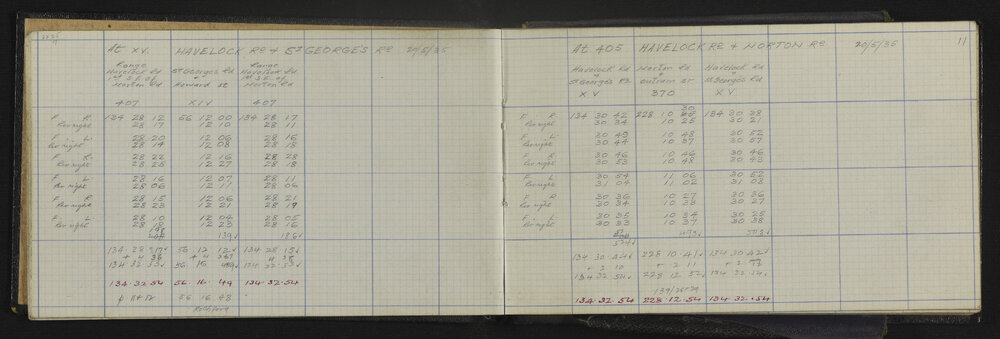 At XV. HAVELOCK Rd & St GEORGE'S Rd 20/5/35
Range Havelock Rd 1st S.E. of Morton Rd
St Georges Rd & Howard St
Range Havelock Rd 1st S.E. of Morton Rd
407 XIV 407
F R 134 28 12 56 12 00 134 28 17
Rev right 28 17 12 10 28 11
F L 28 20 12 06 28 16
Rev right 28 14 12 08 28 18
F R 28 22 12 16 28 28
Rev right 28 25 12 27 28 18
F L 28 16 12 07 28 11
Rev right 28 06 12 11 28 06
F R 28 15 12 06 28 21
Rev right 28 23 12 21 28 19
F L 28 10 12 04 28 05
Rev right 28 18 12 23 28 16
198 139√ 186√
134 28 17√ 56 12 12√ 134 28 15√
134 32 53√ 56 16 134 32 53√
134.32.54 56.16.49 134.32.54
56 16 48
At 405 HAVELOCK Rd & MORTON Rd 20/5/35 11
Havelock Rd & St Georges Rd
Morton Rd & Outram St
Havelock Rd & St Georges Rd
XV 370 XV
30
F R 134 30 42 228 10 134 30 38
Rev right 30 34 10 25 30 21
F L 30 49 10 48 30 52
Rev right 30 44 10 37 30 57
F R 30 46 10 46 30 46
Rev right 30 53 10 48 30 43
F L 30 54 11 06 30 52
Rev right 31 04 11 02 31 03
F R 30 36 10 27 30 36
Rev right 30 34 10 33 30 27
F L 30 35 10 34 30 25
Rev right 30 33 10 37 30 38
524√ 493√ 508√
134 30 44√ 228 10 41√ 134 30 42√
+ 2 10 + 2 11 + 2 12
134 32 54√ 228 12 52√ 134 32 54√
134.32.54 228.12.54 134.32.54